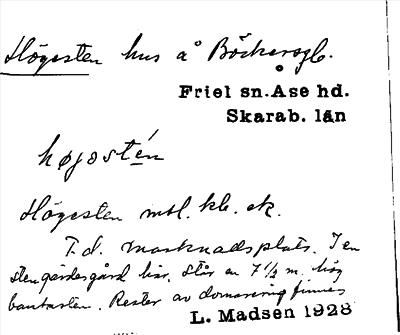 Högesten hus å Böckersgb.
Friel sn. Åse hd.
Skarab. län
højostén
Högesten mtl. kb. ek.
T.d. marknadsplats. I en
stengärdesgård här. står en 7 1/2 m. hög
bautasten. Rester av domarring finnes
L. Madsen 1928